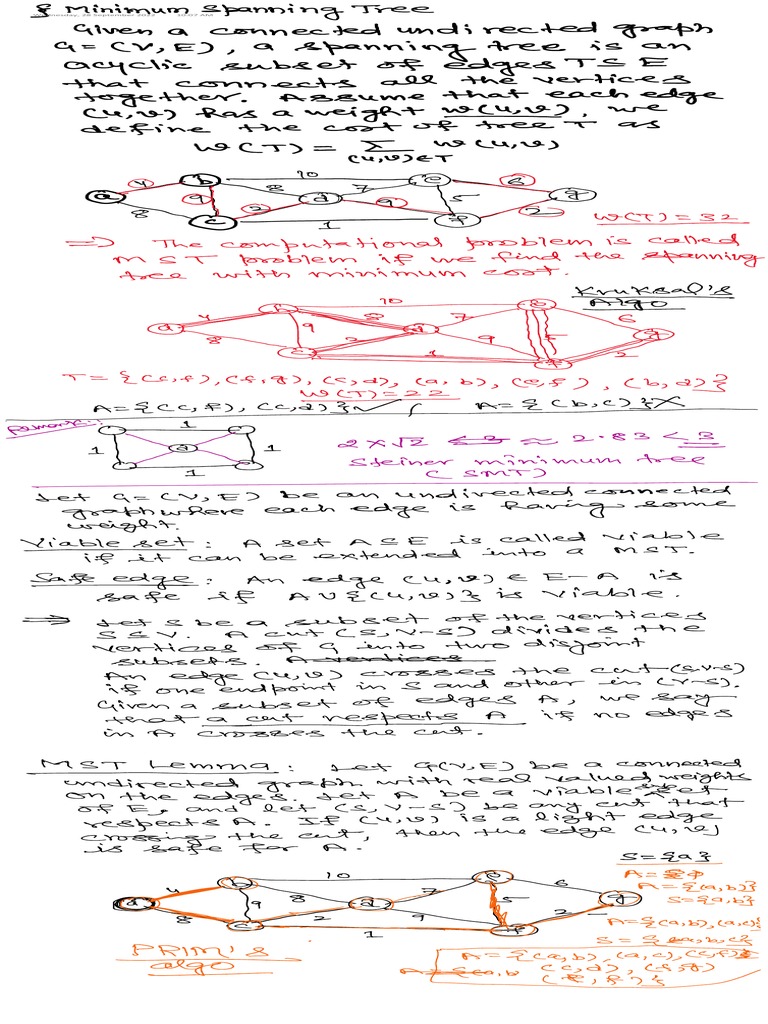 § Minimum Spanning Tree
Wednesday, 28 September 2022 10:07 AM
Given a connected undirected graph
G = (V, E), a spanning tree is an
acyclic subset of edges T ⊆ E
that connects all the vertices
together. Assume that each edge
(u,v) has a weight w(u,v), we
define the cost of tree T as
W(T) = Σ w(u,v)
(u,v)∈T
a 4 b 10 e 6 g
8 9 8 d 7 5
c 2 9 f 2
1
W(T) = 32
=> The computational problem is called
MST problem if we find the spanning
tree with minimum cost.
Kruksal's
Algo
a 4 b 10 e 6 g
8 9 8 d 7
c 2 9 f 2
1
T = {(c,f), (f,g), (c,d), (a,b), (e,f), (b,d)}
W(T) = 22
A = {(c,f), (c,d)} ✓ A = {(b,c)} ✗
Remark:
1
1 1
1
2×√2 ≈ 2.83 < 3
Steiner minimum tree
(SMT)
Let G = (V, E) be an undirected connected
graph where each edge is having some
weight.
Viable set : A set A ⊆ E is called viable
if it can be extended into a MST.
Safe edge : An edge (u,v) ∈ E-A is
safe if A∪{(u,v)} is viable.
=> Let S be a subset of the vertices
S ⊆ V. A cut (S, V-S) divides the
vertices of G into two disjoint
subsets. A vertices
An edge (u,v) crosses the cut (S,V-S)
if one endpoint in S and other in (V-S).
Given a subset of edges A, we say
that a cut respects A if no edges
in A crosses the cut.
MST Lemma : Let G(V,E) be a connected
undirected graph with real valued weights
on the edges. Let A be a viable subset
of E, and let (S, V-S) be any cut that
respects A. If (u,v) is a light edge
crossing the cut, then the edge (u,v)
is safe for A.
S = {a}
A = φ
A = {(a,b)}
S = {a,b}
A = {(a,b), (a,c)}
S = {a,b,c}
a 4 b 10 e 6 g
8 9 8 d 7 5
c 2 9 f 2
1
PRIM's
algo
A = {(a,b), (a,c), (c,f)
(c,d), (f,g)